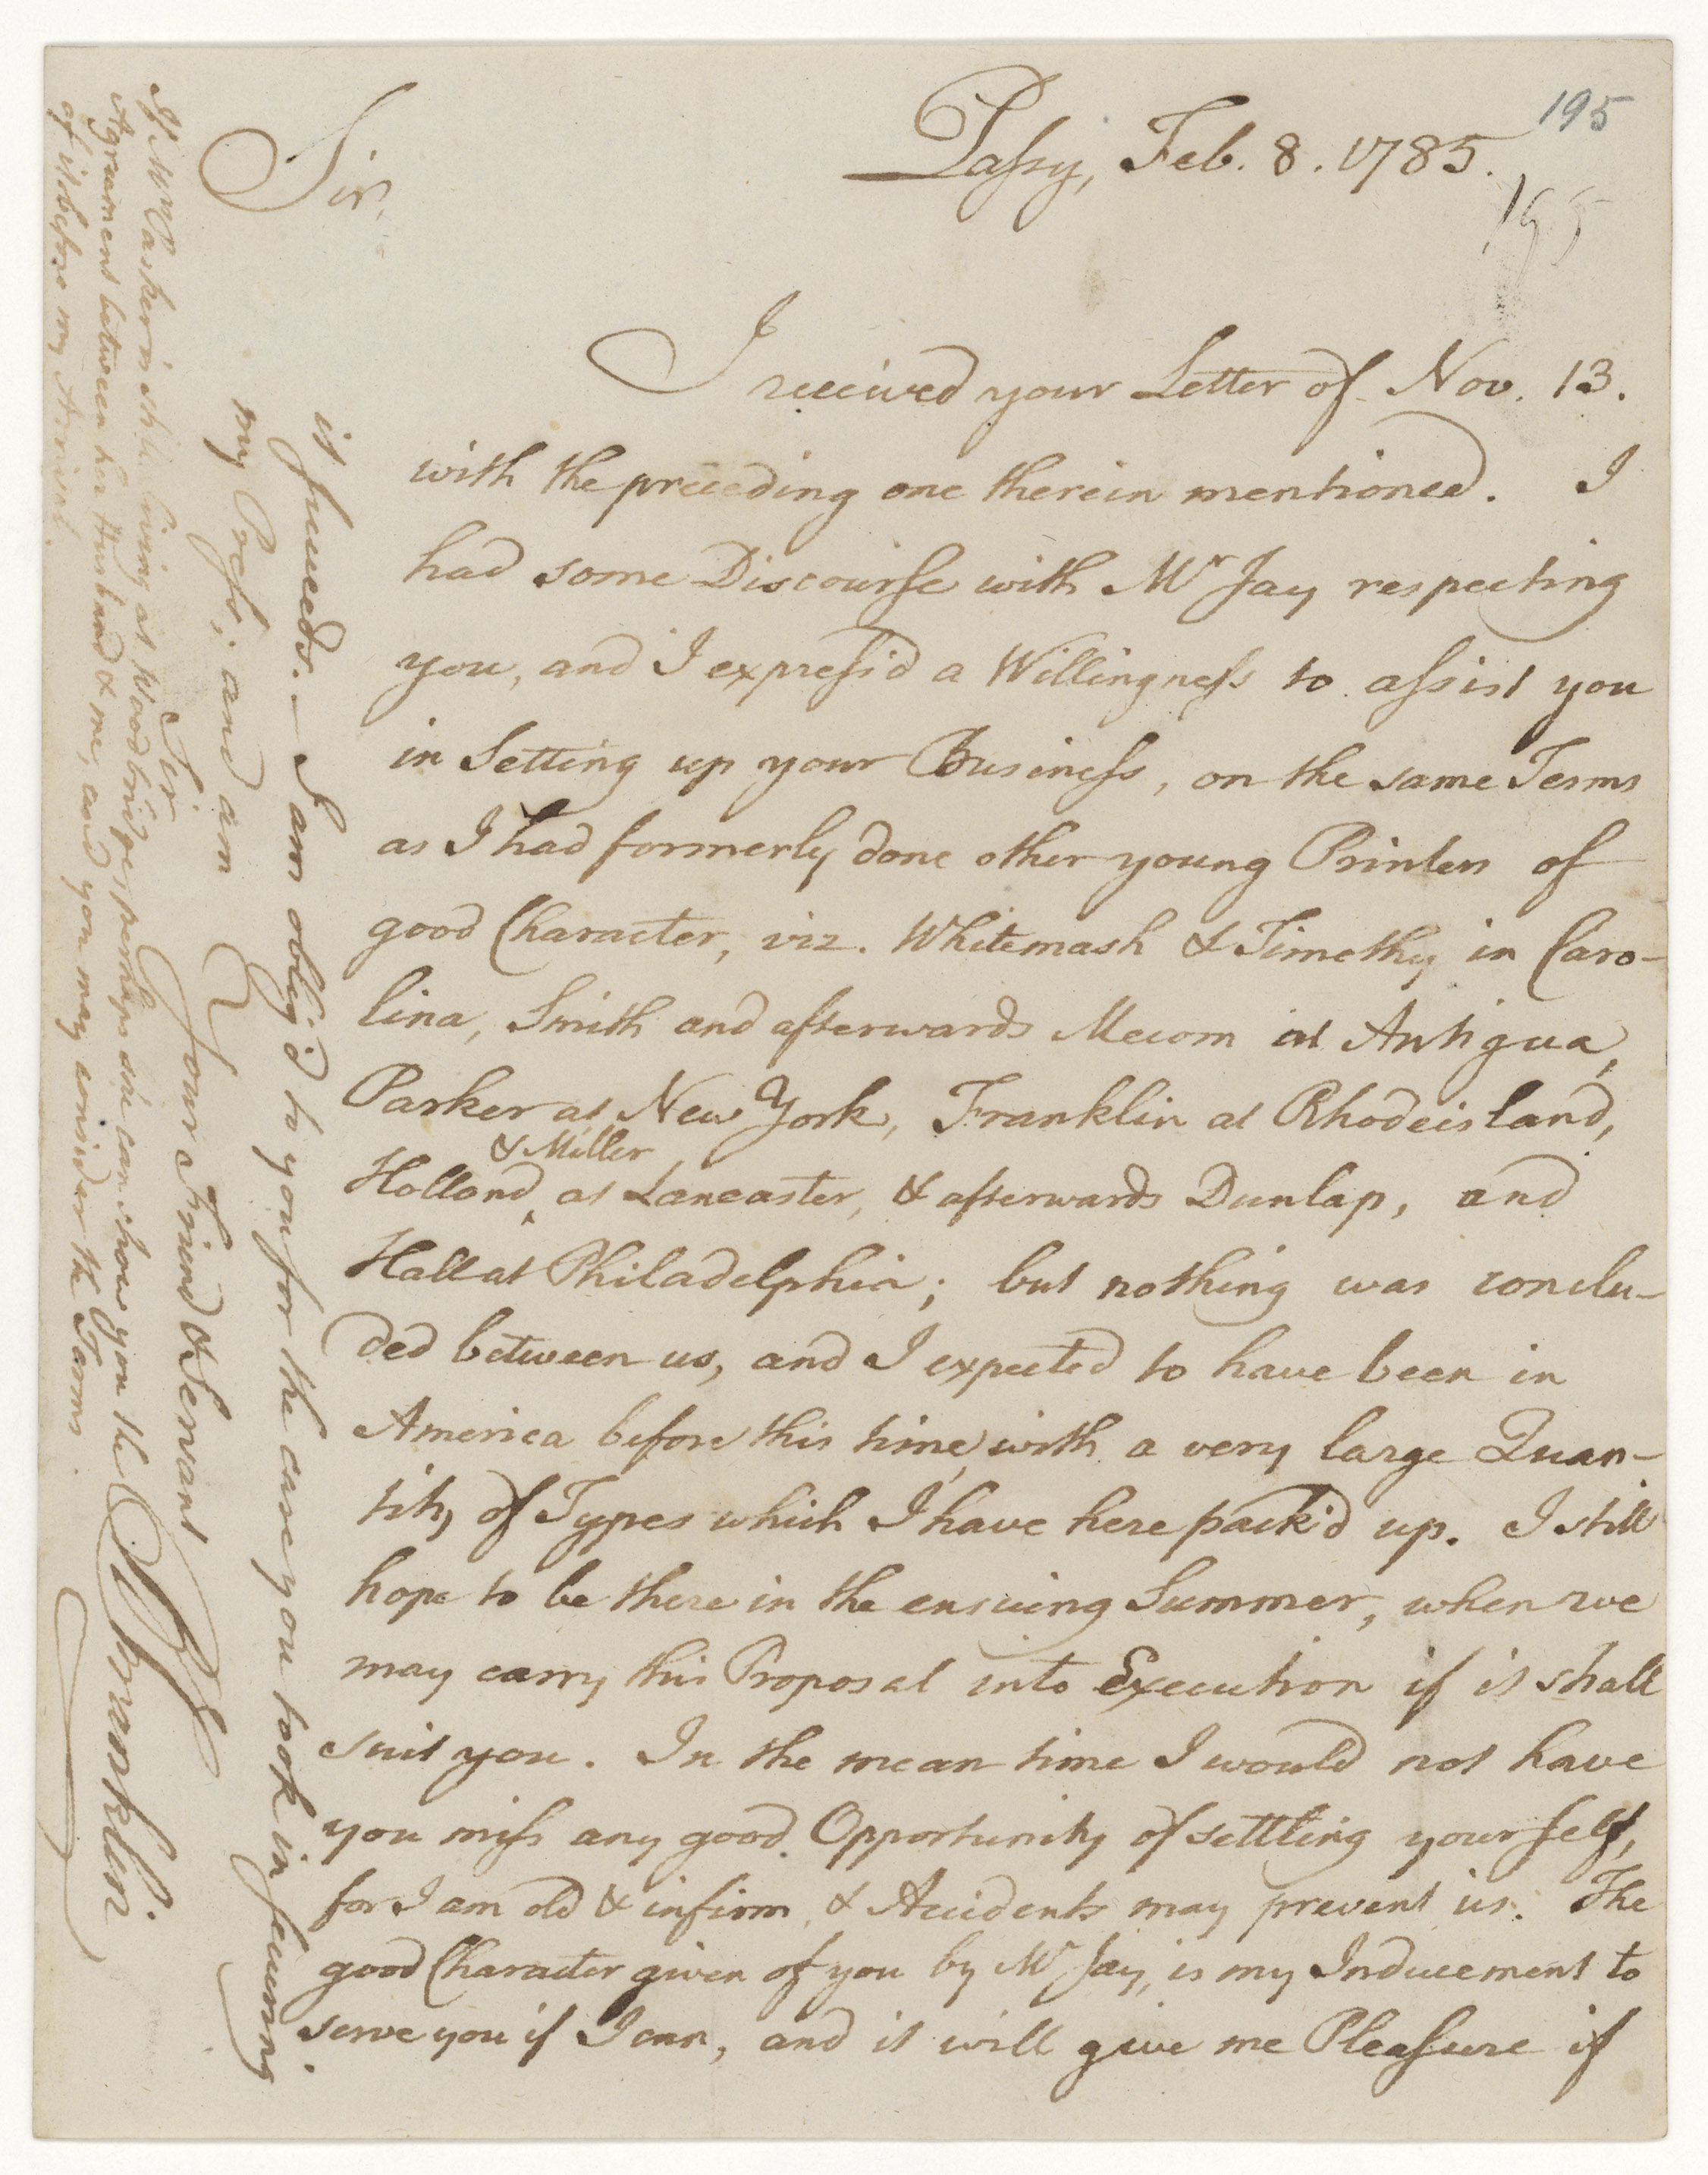 195
Passy, Feb. 8. 1785.
195
Sir,
I received your Letter of Nov. 13.
with the preceeding one therein mentioned. I
had some Discourse with Mr Jay respecting
you, and I express'd a Willingness to assist you
in Setting up your Business, on the same Terms
as I had formerly done other young Printers of
good Character, viz. Whitemash & Timothy in Caro-
lina, Smith and afterwards Mecom at Antigua,
Parker at New York, Franklin at Rhodeisland,
& Miller
Holland, at Lancaster, & afterwards Dunlap, and
Hall at Philadelphia; but nothing was conclu-
ded between us, and I expected to have been in
America before this time, with a very large Quan-
tity of Types which I have here pack'd up. I still
hope to be there in the ensuing Summer, when we
may carry this Proposal into Execution if it shall
suit you. In the mean time I would not have
you miss any good Opportunity of settling yourself,
for I am old & infirm, & Accidents may prevent us. The
good Character given of you by Mr Jay, is my Inducement to
serve you if I can, and it will give me Pleasure if
it succeeds. — I am oblig'd to you for the care you took in securing
my Press; and am
Sir,
Your Friend & Servant
B Franklin
If Mrs Parker is still living at Woodbridge, perhaps she can show you the
Agreement between her Husband & me, and you may consider the Terms
of it before my Arrival.